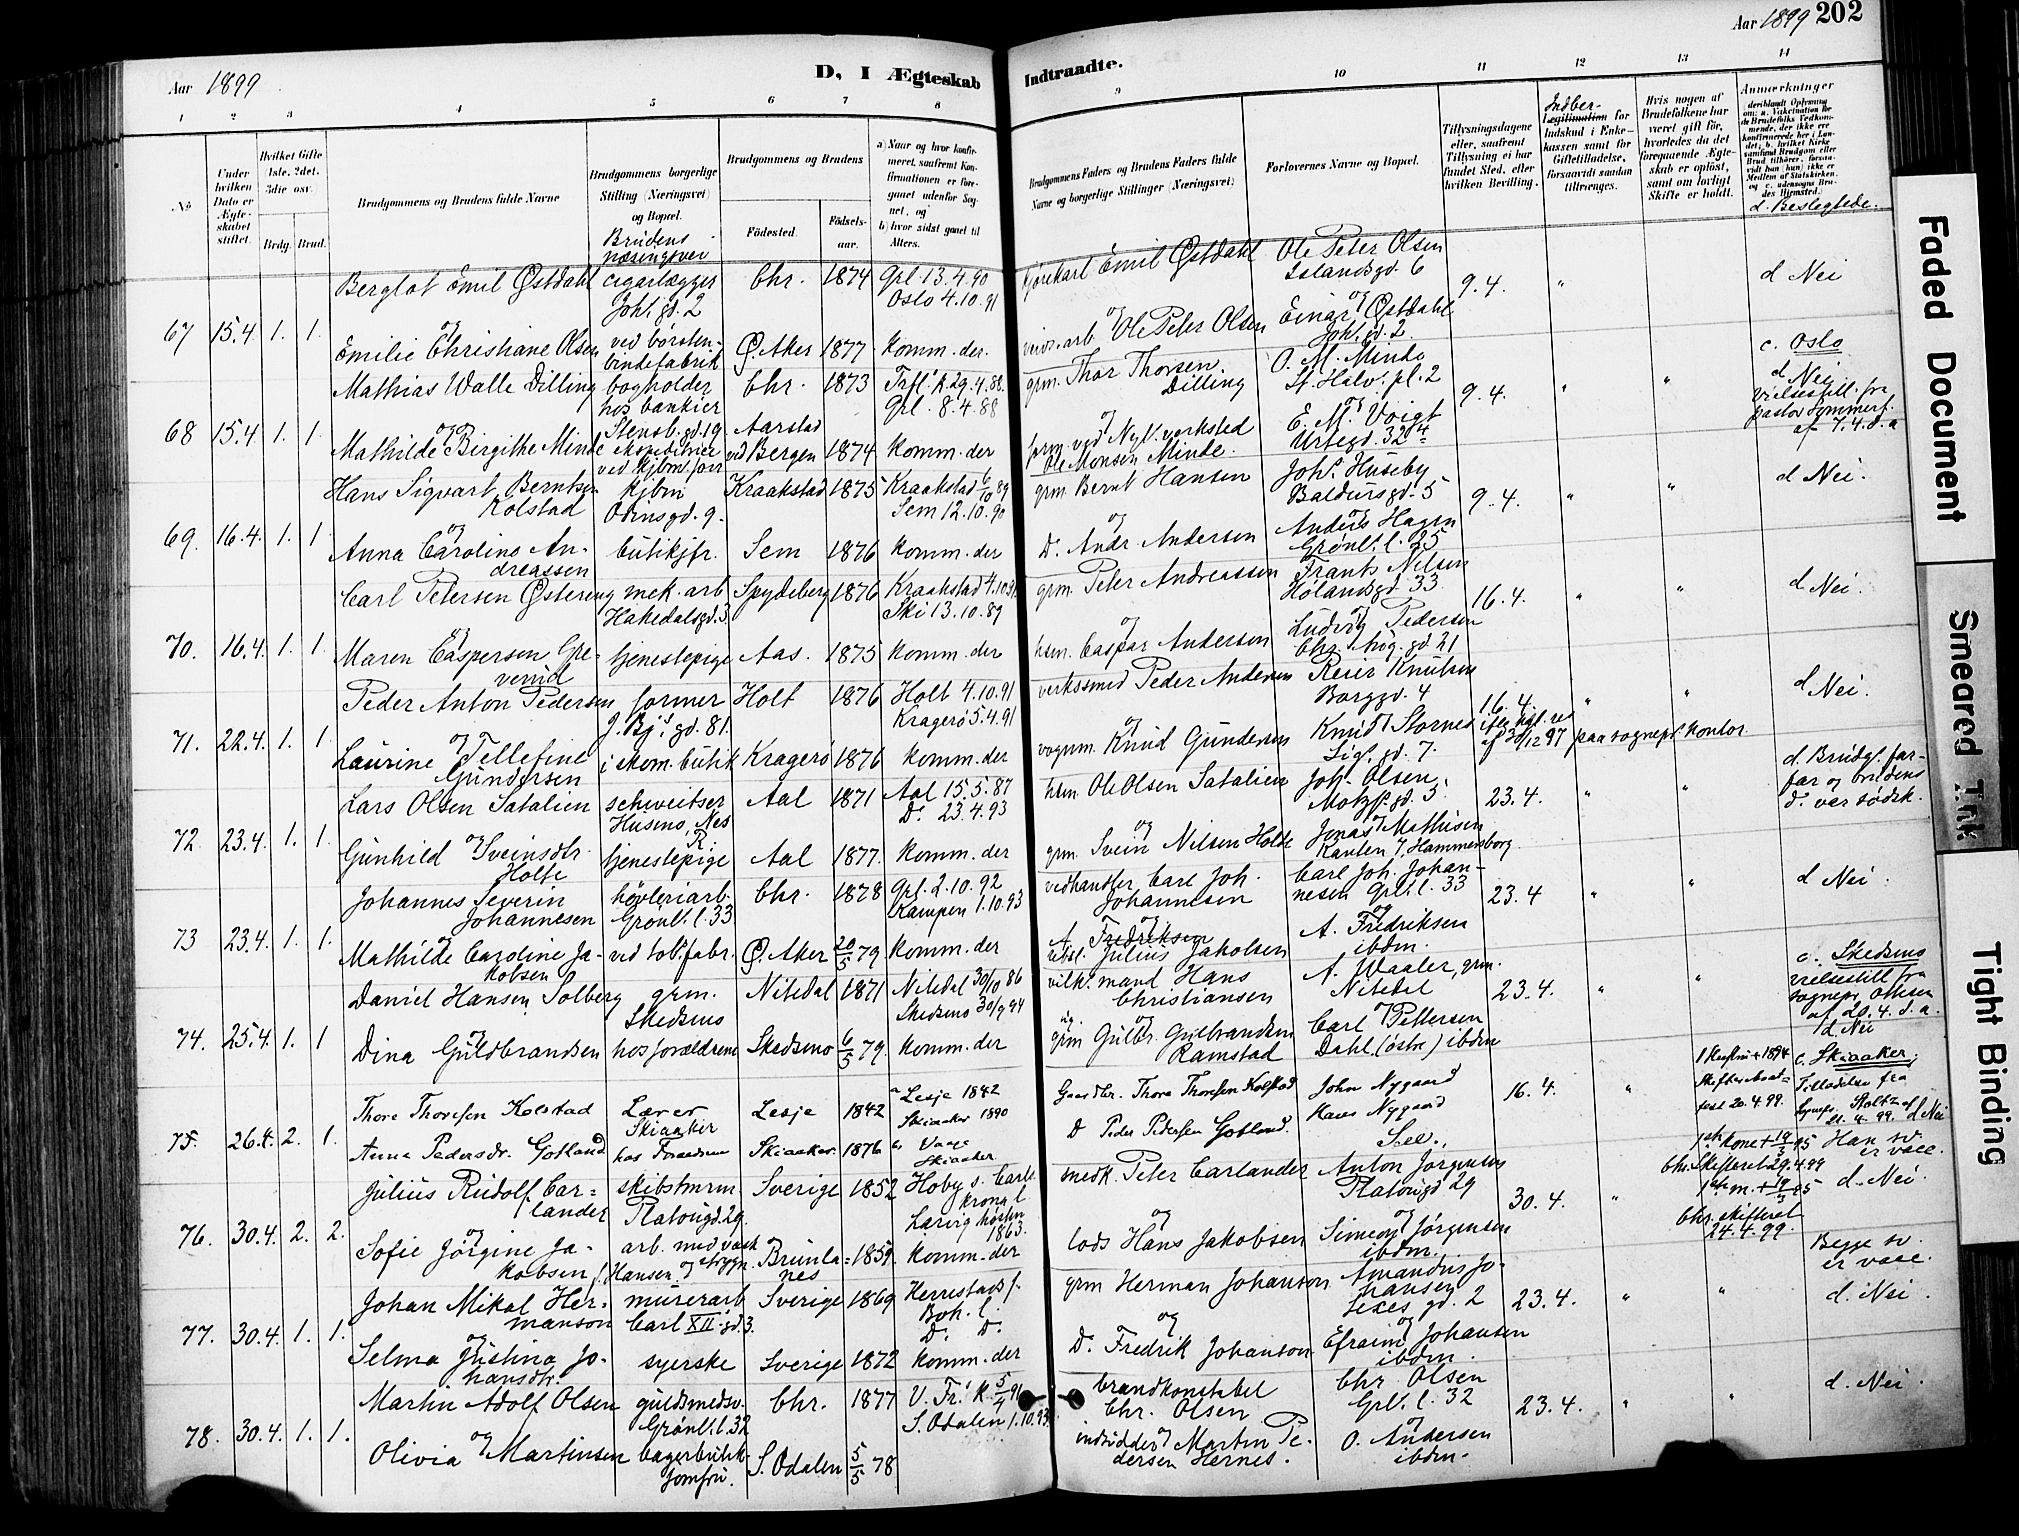 Aar 1899
D, I Ægteskab
Indtraadte.
Aar 1899 202
1 2 3 4 5 6 7 8 9 10 11 12 13 14
No
Under hvilken Dato er Ægteskabet stiftet.
Hvilket Gifte 1ste, 2det, 3die osv.
Brdg. Brud.
Brudgommens og Brudens fulde Navne
Brudgommens borgerlige Stilling (Næringsvei) og Bopæl.
Brudens næringsvei
Brudgommens og Brudens
Födested.
Födsels-aar.
a) Naar og hvor konfirmeret, saafremt Konfirmationen er foregaaet udenfor Sognet, og
b) hvor sidst gaaet til Alters.
Brudgommens Faders og Brudens Faders fulde Navne og borgerlige Stillinger (Næringsvei)
Forlovernes Navne og Bopæl.
Tillysningsdagene eller, saafremt Tillysning ei har fundet Sted, efter hvilken Bevilling.
Indber- Legitimation for Indskud i Enkekassen samt for Giftetilladelse, forsaavidt saadan tiltrænges.
Hvis nogen af Brudefolkene har været gift för, hvorledes da det foregaaende Ægteskab er oplöst, samt om lovligt Skifte er holdt.
Anmærkninger
d. Beslegtede.
67 15.4. 1. 1.
Bergtot Emil Østdahl cigarlægger Joh. gd. 2 Chr. 1874 Grl. 13.4.90 Oslo 4.10.91
kjørekarl Emil Østdahl Ole Peter Olsen Islandsgd. 6 9.4. " d Nei
og
Emilie Christiane Olsen ved børstenbindefabrik Ø. Aker 1877 komm. der.
Ole Peter Olsen Einar Østdahl Joh. gd. 2
68 15.4. 1. 1
Mathias Walle Dilling bogholder hos bankier Stensb. gd. 19 Chr. 1873 Trfl. k. 29.4.88. Grl. 8.4.88
grm. Thor Thorsen Dilling O. M. Minde St. Halv. pl. 2 9.4. " " c. Oslo d Nei vielsestill. fra pastor Sommerf. af 7.4. d. a
og
Mathilde Birgithe Minde ekspeditrice Aarstad ved Bergen 1874 komm. der
form. ved Nyl. verksted Ole Monsen Minde. E. M. Voigt Urtegd. 32
69. 16.4. 1. 1
Hans Sigvart Berntsen Kolstad kjbm Odinsgd. 9. Kraakstad 1875 Kraakstad 6/10 89 Sem 12.10.90
grm Bernt Hansen Johs. Huseby Baldursgd. 5 9.4. " " d Nei.
og
Anna Caroline Andreassen butikjfr. Sem 1876 komm. der
Do. Andr Andersen Anders Hagen Grønl. l. 25
70. 16.4. 1. 1.
Carl Petersen Østereng mek. arb Hakedalsgd. 3 Spydeberg 1876 Kraakstad 4.10.91 Ski 13.10.89
grm. Peter Andreassen Frants Nilsen Hølandsgd 33 16.4. " " d Nei.
og
Maren Caspersen Grevenud tjenestepige Aas. 1875 komm. der
hsm. Caspar Andersen Ludvig Pedersen Chr. Krog. gd 21
71. 22.4. 1. 1
Peder Anton Pedersen former J. Bj. gd. 81. Holt 1876 Holt 4.10.91 Kragerø 5.4.91
verkssmed Peder Andersen Reier Knutsen Borggd. 4 16.4. " " d Nei.
og
Laurine Tellefine Gundersen i skom. butik Kragerø 1876 komm. der
vognm. Knud Gundersen Knud Stornes Sig. gd. 7. 30/12 97 paa sognepr. kontor
72. 23.4. 1. 1
Lars Olsen Satalien schweitser Husmo, Nes R. Aal 1871 Aal 15.5.87 Do. 23.4.93
hsm Ole Olsen Satalien Joh. Olsen. Motzf. gd. 5 23.4. " " d. Brudg. farfar og brudens do. var sødsk.
og
Gunhild Sveinsdtr. Holte tjenestepige Aal 1877. komm. der
grm. Svein Nilsen Holte Jonas Mathisen Hammersborg
73 23.4. 1. 1.
Johannes Severin Johannesen høvleriarb. Grønl. l. 33 Chr. 1878 Grl. 2.10.92 Kampen 1.10.93
vedhandler Carl Joh. Johannesen Carl Joh. Johannesen Grl. l. 33 23.4 " " d Nei.
og
Mathilde Caroline Jakobsen ved tob. fabr. Ø. Aker 20/5 79 komm. der
A. Fredriksen Julius Jakobsen A. Fredriksen ibdm.
74. 25.4. 1. 1
Daniel Hansen Solberg grm. Skedsmo Nitedal 1871 Nitedal 30/10 86 Skedsmo 30/9 94
vilk. mand Hans Christiansen A. Waaler, grm. Nitedal 23.4. " " c. Skedsmo vielsestill fra sognepr. Ottesen af 20.4. d. a. d Nei
og
Dina Guldbrandsen hos forældrene Skedsmo 6/5 79. komm. der
grm Gulbr. Gulbrandsen Ramstad Carl Pettersen Dahl (østre) ibdm
75. 26.4. 2. 1.
Thore Thoresen Kolstad Lærer Skiaaker Lesje 1842 a Lesje 1842 Skiaaker 1890
Gaardbr. Thore Thoresen Kolstad John Nygaard 16.4. " Skifteattest 20.4.99. c. Skiaaker; Tilladelse fra Sognepr. Stoltz af 21.4.99. d Nei
Anna Pedersdr. Gotland hos Foræeldrene Skiaaker. 1876 Vaage Skiaaker
D Peder Pedersen Gotland. Hans Nygaard
76. 30.4. 2. 2.
Julius Rudolf Carlander skibstmrm. Platougd. 29. Sverige 1852 Hoby s. Larvig høsten 1863.
medk. Peter Carlander Anton Jørgensen Platougd 29 30.4. " 1ste kone + 19/3 95 Chr. Skifteret 29.4.99 Han sv. er vacc. d. Nei.
og
Sofie Jørgine Jakobsen f. Hansen arb. med vask og strygn. Brunlanes 1859. komm. der
lods Hans Jakobsen Simeon Jørgensen ibdm. 1ste m. + 19/3 95 Chr. skifteret 24.4.99.
77. 30.4. 1. 1.
Johan Mikal Hermanson murerarb Carl XII gd. 3. Sverige 1869 Herrestads f. Boh. l. Do. Do.
grm Herman Johanson Amandus Johansen Sexes gd. 2 23.4. " " Begge sv. er vacc. d. Nei.
og
Selma Justina Johansdtr. syerske Sverige 1872 komm. der
Do. Fredrik Johanson Efraim Johansen ibdm.
78. 30.4. 1. 1.
Martin Adolf Olsen guldsmedsv. Grønl. l. 32 Chr. 1877 V. Fr. k. 5/4 91 S. Odalen 1.10.93
brandkonstabel Chr. Olsen Chr. Olsen Grl. l. 32 23.4. " " d. Nei.
og
Olivia Martinsen bagerbutik-jomfru. S. Odalen 5/5 78
indsidder Martin Pedersen Hernes. O. Andersen ibdm.
Faded Document
Smeared Ink
Tight Binding